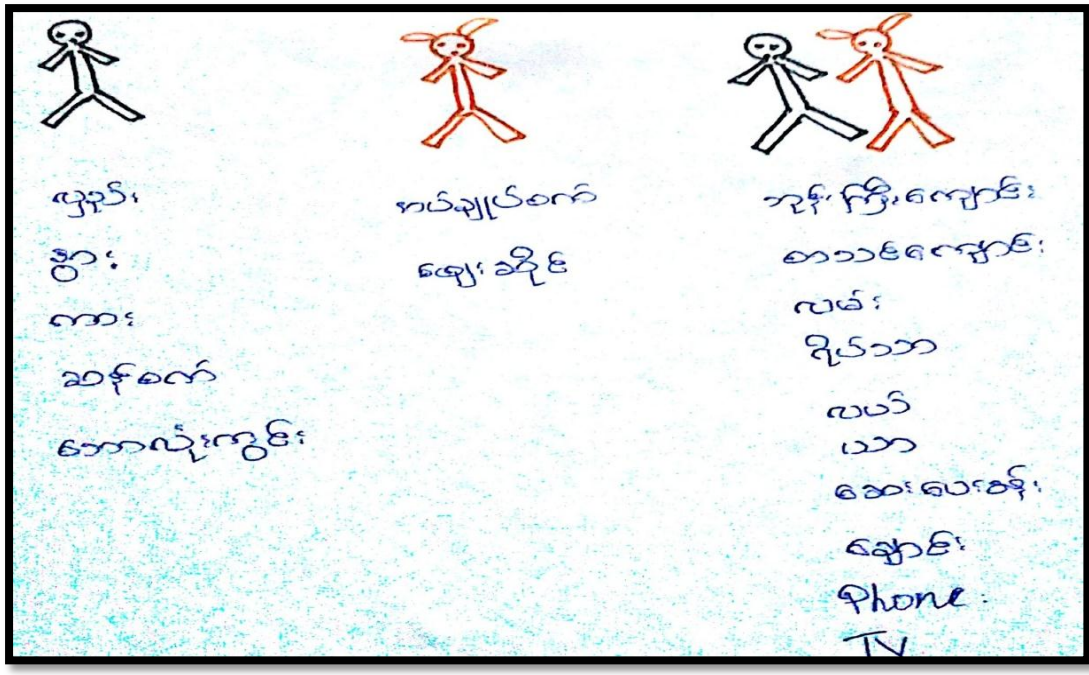 လှည်း
နွား
ကား
ဆန်စက်
ဘောလုံးကွင်း
အပ်ချုပ်စက်
ဈေးဆိုင်
ဘုန်းကြီးကျောင်း
စာသင်ကျောင်း
လမ်း
ရိပ်သာ
လယ်
ယာ
ဆေးပေးခန်း
ချောင်း
Phone
TV